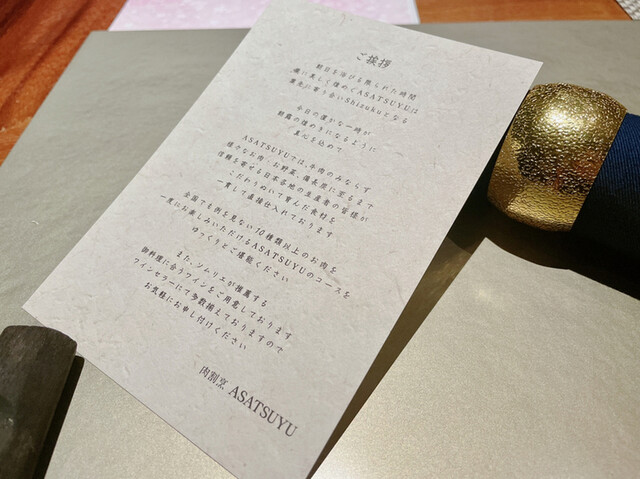 ご挨拶
朝日を浴びる限られた時間
儚く美しく煌めくASATSUYUは
葉先に寄り合いShizukuとなる
今日の僅かな一時が
朝露の煌めきになるように
真心を込めて
ASATSUYUでは、牛肉のみならず
様々なお肉、お野菜、備長炭に至るまで
信頼を寄せる日本各地の生産者の皆様が
こだわりぬいて育んだ食材を
一貫して直接仕入れております
全国でも例を見ない10種類以上のお肉を
一度にお楽しみいただけるASATSUYUのコースを
ゆっくりとご堪能ください
また、ソムリエが推薦する
御料理に合うワインをご用意しております
ワインセラーにて多数揃えておりますので
お気軽にお申し付けください
肉割烹 ASATSUYU